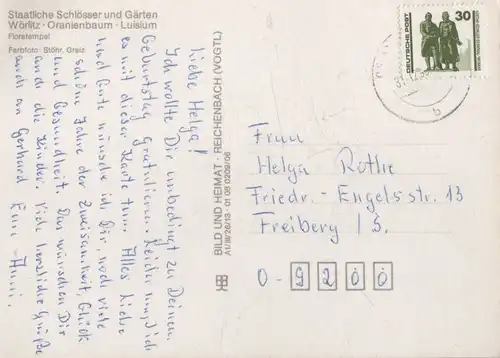 Staatliche Schlösser und Gärten
Wörlitz · Oranienbaum · Luisium
Floratempel
Farbfoto · Stöhr, Greiz
Liebe Helga!
Ich wollte Dir unbedingt zu Deinem
Geburtstag Gratulieren. Leider muß ich
es mit dieser Karte tun. Alles Liebe
und Gute wünsche ich Dir, noch viele
schöne Jahre der Zweisamkeit, Glück
und Gesundheit. Das wünschen Dir
auch die Kinder. Viele herzliche Grüße
auch an Gerhard
BILD UND HEIMAT · REICHENBACH (VOGTL)
A1/III/26/13 · 01 08 0209/06
DEUTSCHE POST
30
b
Frau
Helga Rothe
Friedr.-Engelsstr. 13
Freiberg /S.
O-9200